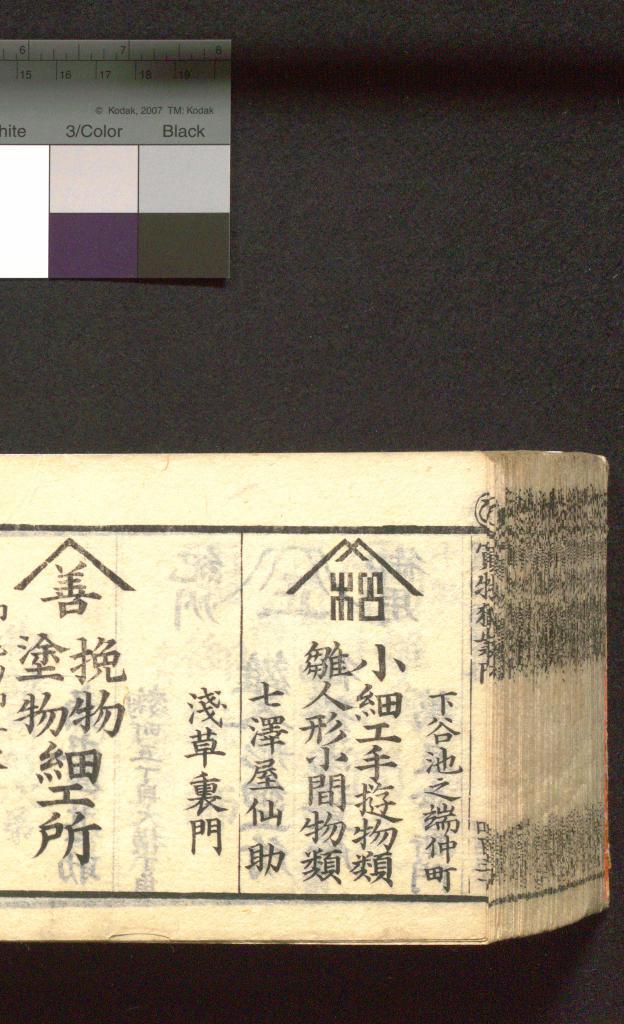 6 7 8
15 16 17 18 19
© Kodak, 2007 TM: Kodak
hite 3/Color Black
下谷池之端仲町
松
小細工手遊物類
雛人形小間物類
七澤屋仙助
淺草裏門
善
挽物
塗物
細工所